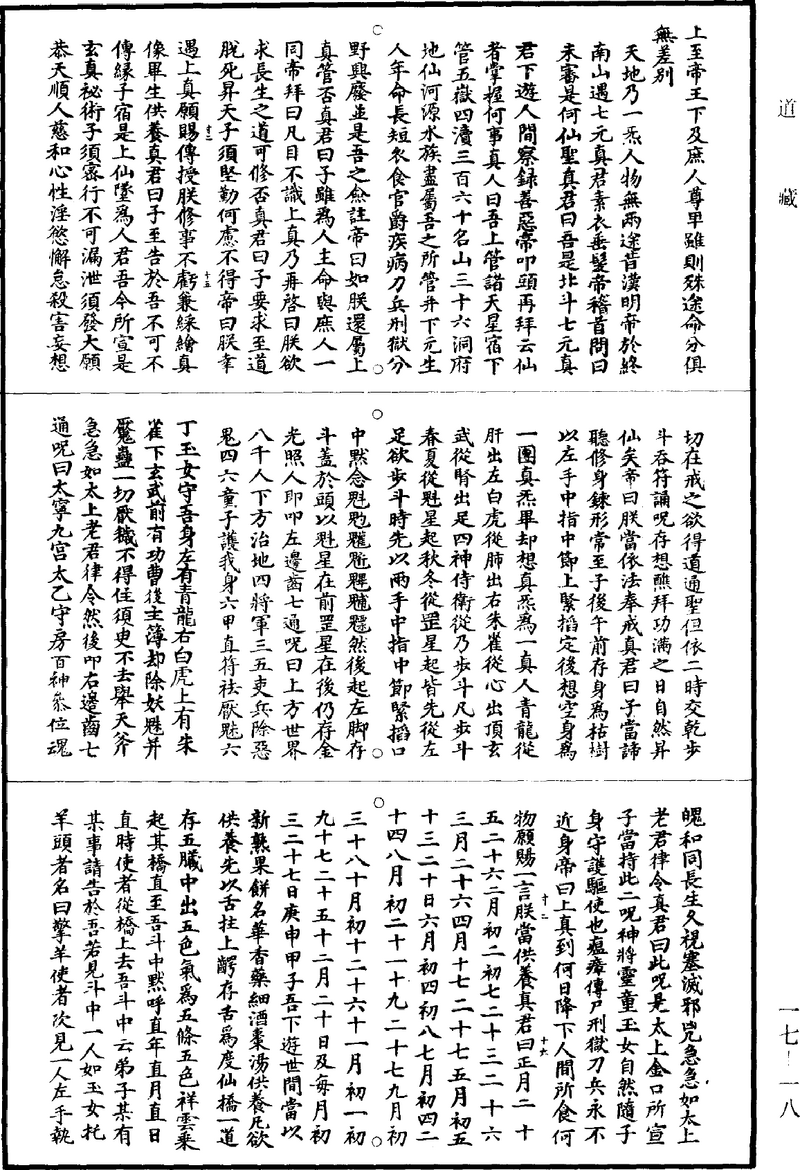 道藏
一七-一八
上至帝王下及庶人尊卑雖則殊途命分俱
無差別
天地乃一炁人物無兩途昔漢明帝於終
南山遇七元真君素衣垂髮帝稽首問曰
未審是何仙聖真君曰吾是北斗七元真
君下遊人間察錄善惡帝叩頭再拜云仙
者掌握何事真人曰吾上管諸天星宿下
管五嶽四瀆三百六十名山三十六洞府
地仙河源水族盡屬吾之所管并下元生
人年命長短衣食官爵疾病刀兵刑獄分
野興廢並是吾之僉註帝曰如朕還屬上
真管否真君曰子雖為人主命與庶人一
同帝拜曰凡目不識上真乃再啓曰朕欲
求長生之道可修否真君曰子要求至道
脫死昇天子須堅勤何慮不得帝曰朕幸
遇上真願賜傳授朕修事不虧兼綵繪真
像畢生供養真君曰子至告於吾不可不
傳緣子宿是上仙墜為人君吾今所宣是
玄真祕術子須密行不可漏泄須發大願
恭天順人慈和心性淫慾懈怠殺害妄想
切在戒之欲得道通聖但依二時交乾步
斗吞符誦呪存想醮拜功滿之日自然昇
仙矣帝曰朕當依法奉戒真君曰子當諦
聽修身鍊形常至子後午前存身為枯樹
以左手中指中節上緊搯定後想空身為
一團真炁畢却想真炁為一真人青龍從
肝出左白虎從肺出右朱雀從心出頂玄
武從腎出足四神侍衛從乃步斗凡步斗
春夏從魁星起秋冬從罡星起皆先從左
足欲步斗時先以兩手中指中節緊搯口
中默念魁𩲃䰢魓𩵄𩳐魒然後起左脚存
斗蓋於頭以魁星在前罡星在後仍存金
光照人即叩左邊齒七通呪曰上方世界
八千人下方治地四將軍三五吏兵除惡
鬼四六童子護我身六甲直符祛厭魅六
丁玉女守吾身左有青龍右白虎上有朱
雀下玄武前有功曹後主簿却除妖魅并
魘蠱一切厭穢不得住須臾不去舉天斧
急急如太上老君律令然後叩右邊齒七
通呪曰太寧九宮太乙守房百神參位魂
魄和同長生久視塞滅邪兇急急如太上
老君律令真君曰此呪是太上金口所宣
子當持此二呪神將靈童玉女自然隨子
身守護驅使也瘟瘴傳尸刑獄刀兵永不
近身帝曰上真到何日降下人間所食何
物願賜一言朕當供養真君曰正月二十
五二十六二月初二初七二十三二十六
三月二十六四月十七二十七五月初五
十三二十日六月初四初八七月初四二
十四八月初二十一十九二十七九月初
三十八十月初十二十六十一月初一初
九十七二十五十二月二十日及每月初
三二十七日庚申甲子吾下遊世間當以
新熟果餅名華香藥細酒棗湯供養凡欲
供養先以舌拄上齶存舌為度仙橋一道
存五臟中出五色氣為五條五色祥雲乘
起其橋直至吾斗中默呼直年直月直日
直時使者從橋上去吾斗中云弟子某有
某事請告於吾若見斗中一人如玉女托
羊頭者名曰擎羊使者次見一人左手執